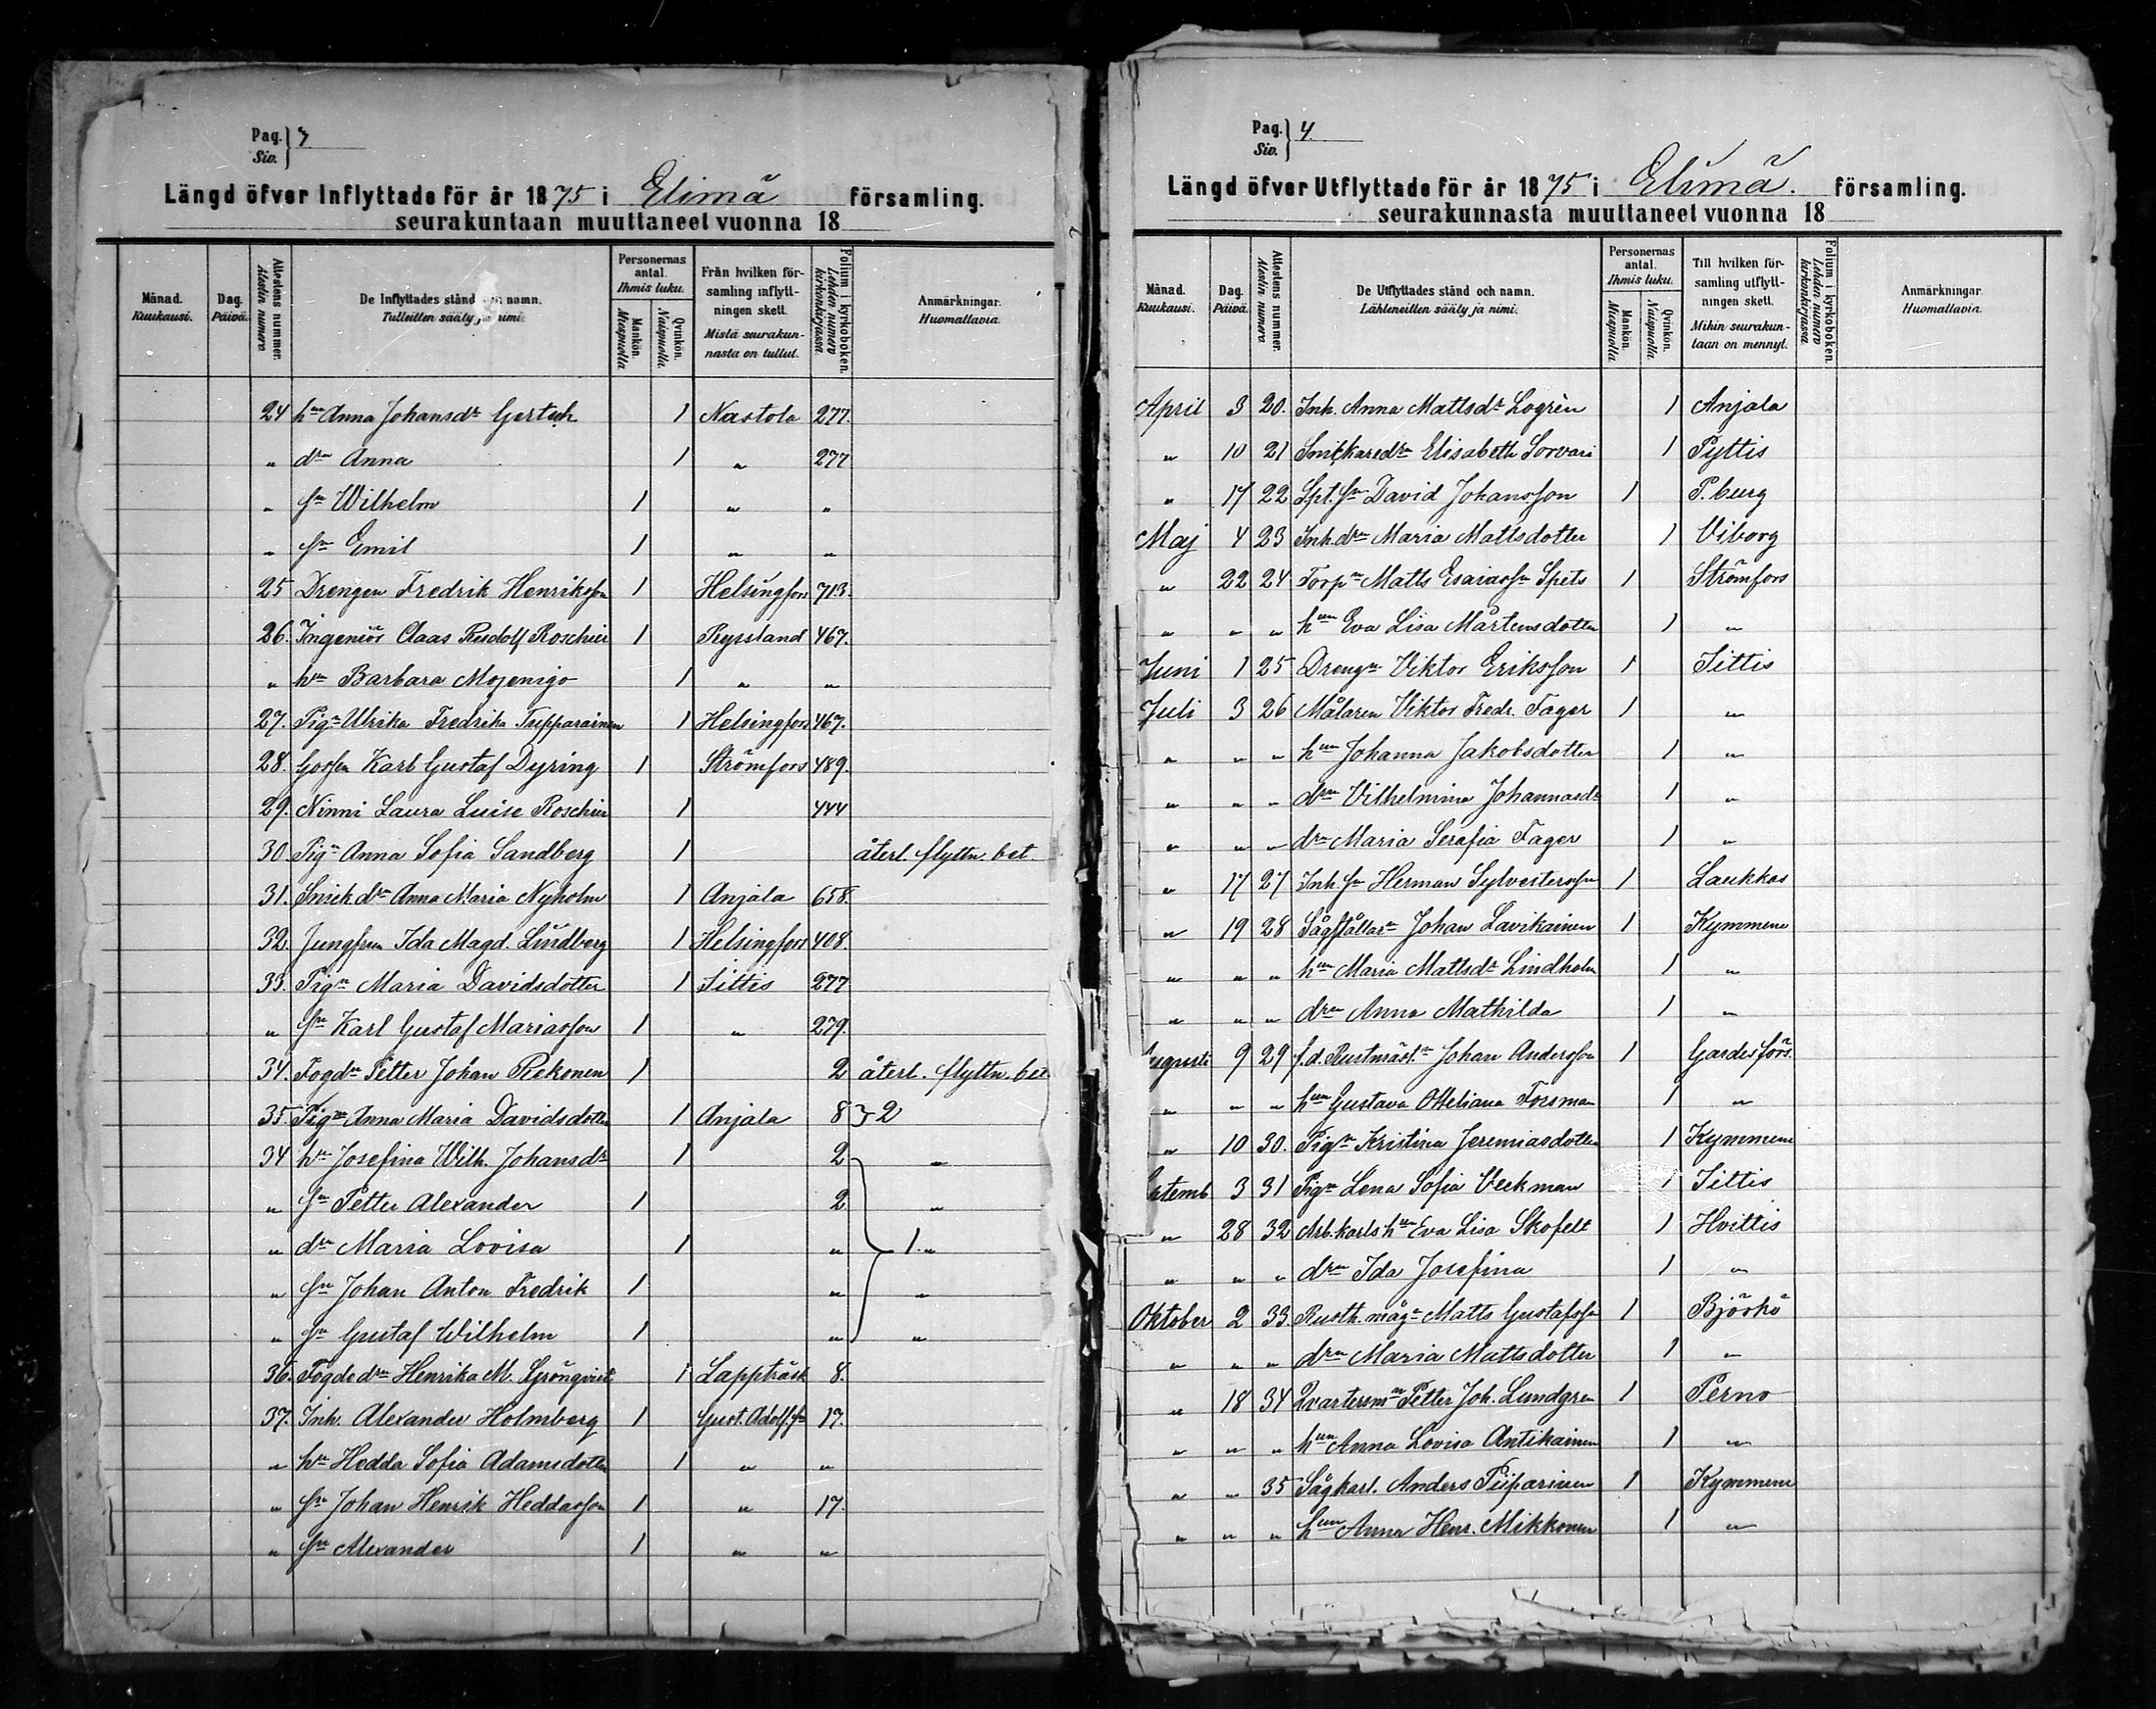 Pag. Siv. } 7
Längd öfver Inflyttade för år 1875 i Elimä församling.
seurakuntaan muuttaneet vuonna 18
Månad. Kuukausi. Dag. Päivä. Attestens nummer. Alestin numero De Inflyttades stånd och namn. Tulleitten sääty ja nimi. Personernas antal. Ihmis luku. Mankön. Miespuolla Qvinkön. Naispuolla Från hvilken församling inflyttningen skett. Mistä seurakunnasta on tullut. Folium i kyrkoboken. Lehden numero kirkonkirjassa Anmärkningar. Huomattavia.
24 hn Anna Johansdr Gertsch 1 Nastola 277.
" drn Anna 1 " 277
" sn Wilhelm 1 " "
" sn Emil 1 " "
25 Drengen Fredrik Henriksson 1 Helsingfors 713.
26. Ingeniör Claas Rudolf Roschier 1 Ryssland 467.
" hn Barbara Mozenigo 1 " "
27. Pign Ulrika Fredrika Tupparainen 1 Helsingfors 467.
28. Gossen Karl Gustaf Dyring 1 Strömfors 489.
29. Ninni Laura Luise Roschier 1 444
30 Pign Anna Sofia Sandberg 1 återl. flyttn. bet
31. Snickdrn Anna Maria Nyholm 1 Anjala 658.
32. Jungfrun Ida Magd. Lindberg 1 Helsingfors 408.
33. Pign Maria Davidsdotter 1 Sittis 277
" sn Karl Gustaf Mariasson 1 " 279.
34. Fogdn Petter Johan Rekonen 1 2 återl. flyttn. bet
35. Pign Anna Maria Davidsdotter 1 Anjala 8 } 2
34 hn Josefina Wilh. Johansdr 1 2 "
" sn Petter Alexander 1 2 "
" drn Maria Lovisa 1 " 1. "
" sn Johan Anton Fredrik 1 " "
" sn Gustaf Wilhelm 1 " "
36. Fogdedrn Henrika M. Grönqvist 1 Lappträsk 8.
37. Inh. Alexander Holmberg 1 Gust. Adolf. 17.
" hn Hedda Sofia Adamsdotter 1 " "
" sn Johan Henrik Heddasson 1 " 17.
" sn Alexander 1 " "
Pag. Siv. } 4.
Längd öfver Utflyttade för år 1875 i Elimä. församling.
seurakunnasta muuttaneet vuonna 18
Månad. Kuukausi. Dag. Päivä. Attestens nummer. Alestin numero De Utflyttades stånd och namn. Lähteneitten sääty ja nimi. Personernas antal. Ihmis luku. Mankön. Miespuolla Qvinkön. Naispuolla Till hvilken församling utflyttningen skett. Mihin seurakuntaan on mennyt. Folium i kyrkoboken. Lehden numero kirkonkirjassa Anmärkningar. Huomattavia.
April 3 20. Inh. Anna Mattsdr Logrén 1 Anjala
" 10 21 Snickaredrn Elisabeth Sorvari 1 Pyttis
" 17 22 Spt. sn David Johansson 1 P.burg
Maj 4 23 Inh. drn Maria Mattsdotter 1 Viborg
" 22 24 Torpn Matts Esaiasson Spets 1 Strömfors
" " " hun Eva Lisa Mårtensdotter 1 "
Juni 1 25 Drengn Viktor Eriksson 1 Sittis
Juli 3 26 Målaren Viktor Fredr. Fager 1 "
" " " hun Johanna Jakobsdotter 1 "
" " " drn Vilhelmina Johannasdr 1 "
" " " drn Maria Serafia Fager 1 "
" 17 27 Inh. sn Herman Sylvestersson 1 Laukkas
" 19 28 Sågställarn Johan Lavikainen 1 Kymmene
" " " hun Maria Mattsdr Lindholm 1 "
" " " drn Anna Mathilda 1 "
ugusti 9 29 f.d. Rustmäst.n Johan Andersson 1 Gardesförs.
" " " hun Gustava Otteliana Forsman 1 "
" 10 30. Pign Kristina Jeremiasdotter 1 Kymmene
ptemb 3 31 Pign Lena Sofia Veckman 1 Sittis
" 28 32 Arb.karls hun Eva Lisa Skofelt 1 Hvittis
" " " drn Ida Josefina 1 "
Oktober 2 33. Rusth. mågn Matts Gustafsson 1 Björkö
" " " drn Maria Mattsdotter 1 "
" 18 34 Qvartersmn Petter Joh. Lundgren 1 Perno
" " " hun Anna Lovisa Antikainen 1 "
" " 35 Sågkarl. Anders Piiparinen 1 Kymmene
" " " hun Anna Henr. Mikkonen 1 "